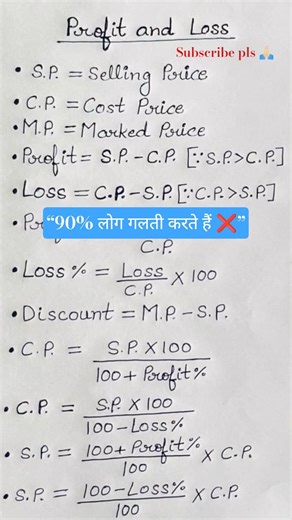 Profit and Loss
Subscribe pls 🙏
• S.P. = Selling Price
• C.P. = Cost Price
• M.P. = Marked Price
• Profit = S.P. - C.P. [∵S.P.>C.P.]
• Loss = C.P. - S.P. [∵C.P.>S.P.]
“90% लोग गलती करते हैं ❌”
C.P.
• Loss % = Loss/C.P. X 100
• Discount = M.P. - S.P.
• C.P. = S.P. X 100/100 + Profit%
• C.P. = S.P. X 100/100 - Loss%
• S.P. = 100 + Profit%/100 X C.P.
• S.P. = 100 - Loss%/100 X C.P.